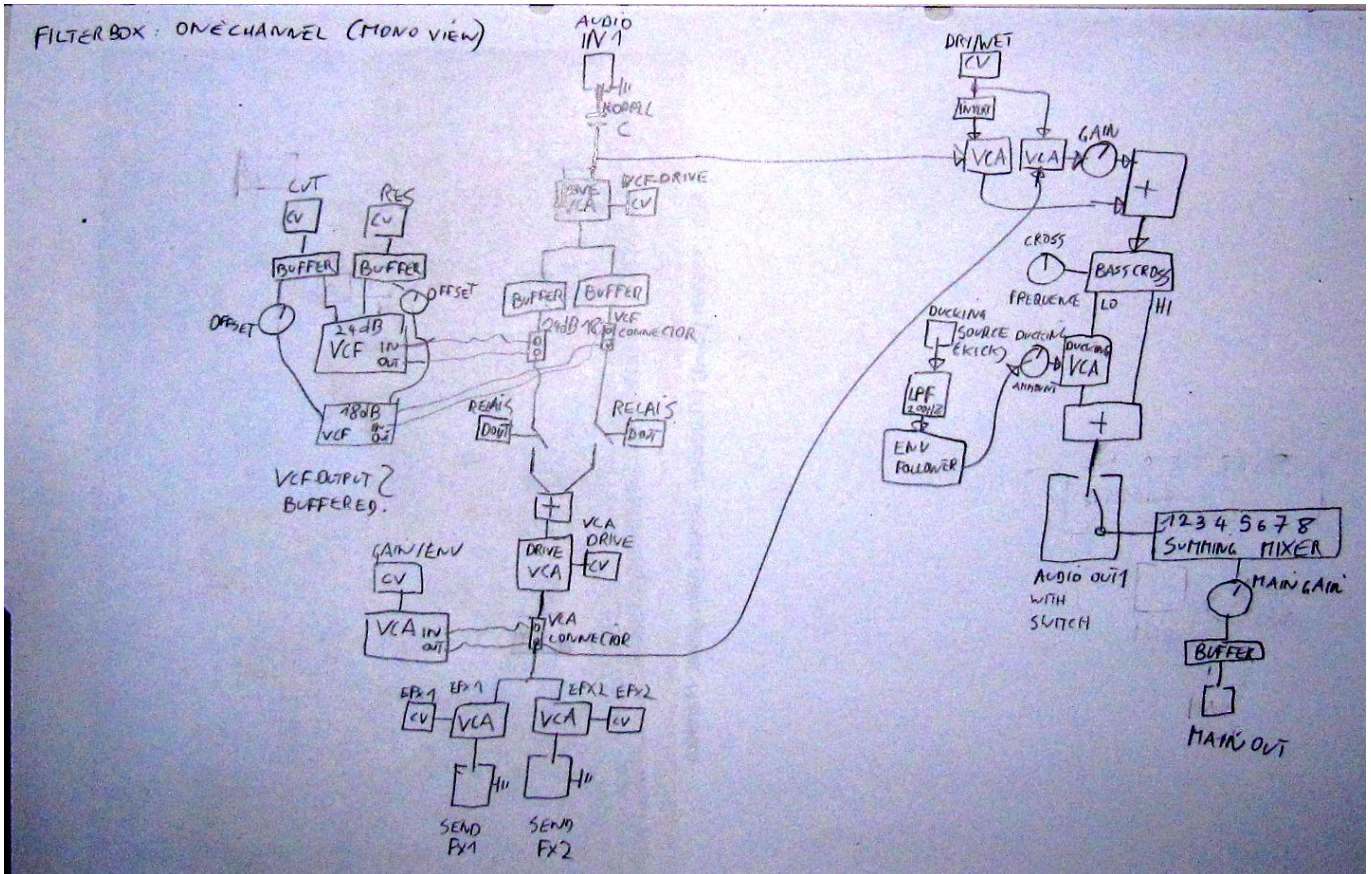 FILTERBOX: ONE CHANNEL (MONO VIEW)
AUDIO
IN 1
KOPPEL
C
DRIVE
VCA
VCF-DRIVE
CV
CUT
CV
RES
CV
BUFFER
BUFFER
OFFSET
OFFSET
24dB
VCF IN
OUT
18dB
VCF IN
OUT
VCF OUTPUT
BUFFERED.
BUFFER
BUFFER
24dB
18
VCF
CONNECTOR
RELAIS
DOUT
RELAIS
DOUT
+
DRIVE
VCA
VCA
DRIVE
CV
GAIN/ENV
CV
VCA IN
OUT
VCA
CONNECTOR
EFX1
CV
EFX1
VCA
EFX2
VCA
EFX2
CV
SEND
FX1
SEND
FX2
DRY/WET
CV
INVERT
VCA
VCA
GAIN
+
CROSS
FREQUENCE
BASSCROSS
LO
HI
DUCKING
SOURCE
(KICK)
LPF
200HZ
ENV
FOLLOWER
DUCKING
AMOUNT
DUCKING
VCA
+
AUDIO OUT 1
WITH
SWITCH
1 2 3 4 5 6 7 8
SUMMING MIXER
MAIN GAIN
BUFFER
MAIN OUT